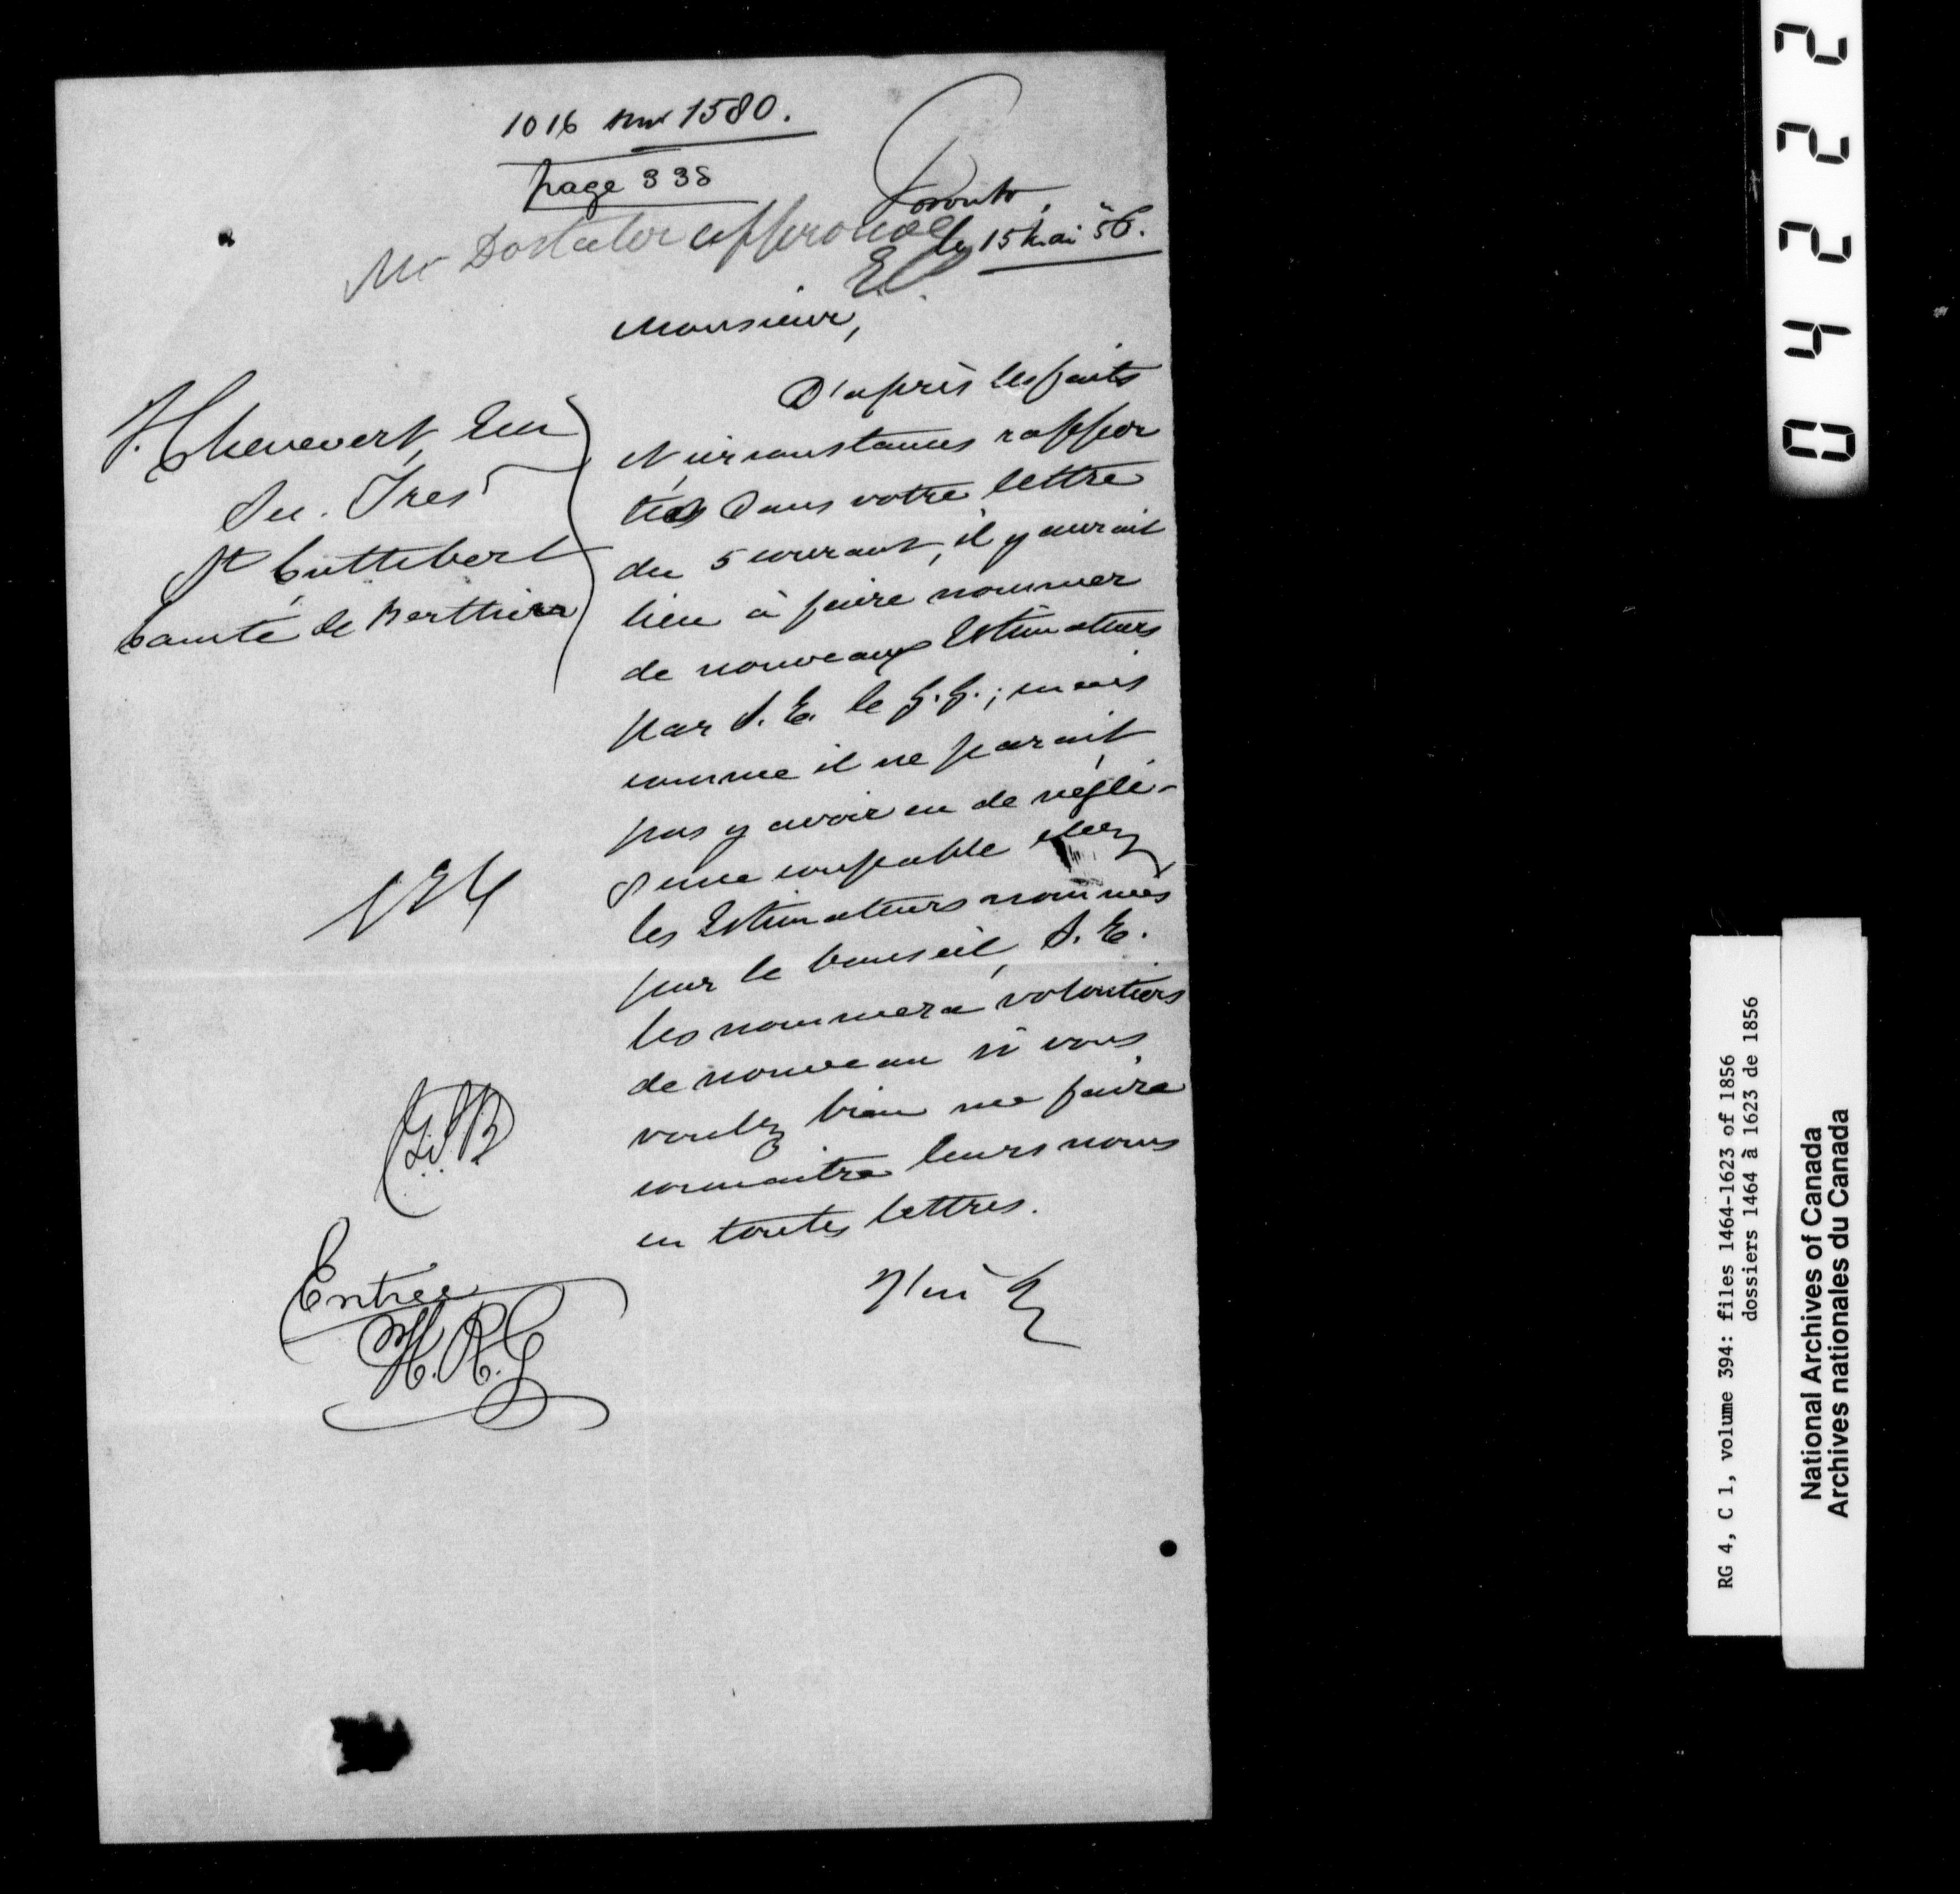 1016 sur 1580.
page 338
Toronto,
le 15 Mai 56.
Mr Dostaler approuvé
E.C.
Monsieur,
Chenevert, Ecr
Sec. Tres
St Cuthbert
Comté de Berthier
D'après les faits
et circonstances rappor
tés dans votre lettre
du 5 courant, il y aurait
lieu à faire nommer
de nouveaux Estimateurs
par S. E. le G. G.; mais
comme il ne parait
pas y avoir eu de négli-
gence coupable chez
les Estimateurs nommés
par le Conseil, S. E.
les nommera volontiers
de nouveau si vous
voulez bien me faire
connaitre leurs noms
en toutes lettres.
J'ai &c
Entrée
H.R.G
04222
RG 4, C 1, volume 394: files 1464-1623 of 1856
dossiers 1464 à 1623 de 1856
National Archives of Canada
Archives nationales du Canada